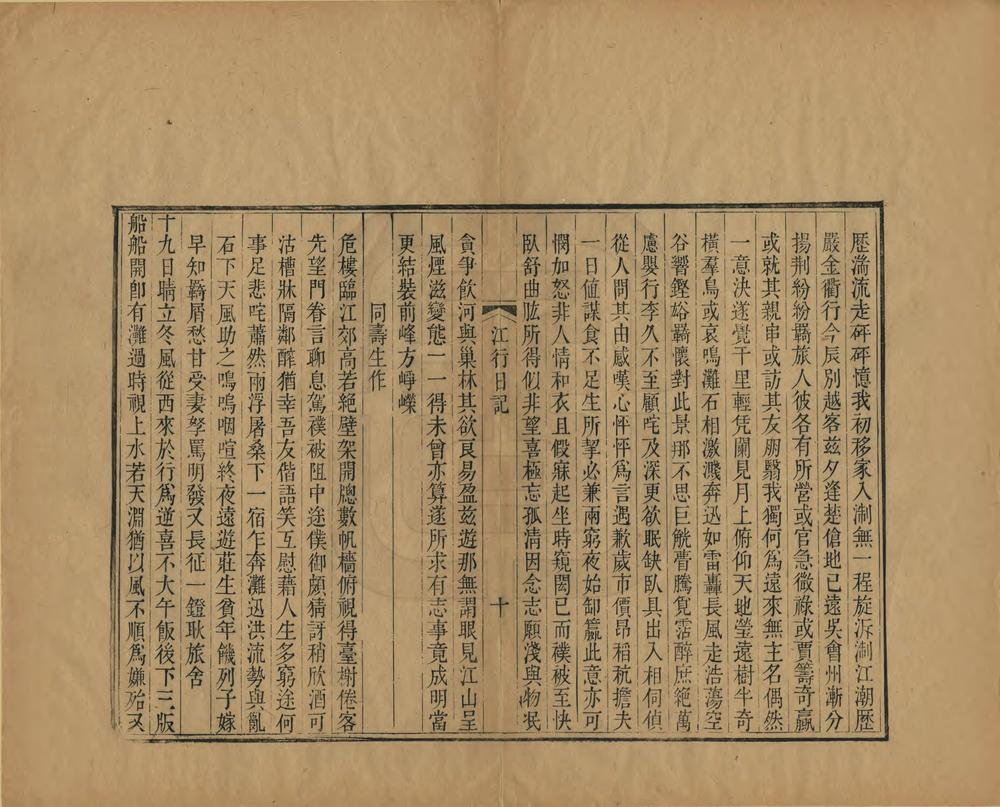 歷湍流走砰砰憶我初移家入淛無一程旋泝淛江潮歷
嚴金衢行今辰別越客茲夕逢楚傖地已遠吳會州漸分
揚荆紛紛羈旅人彼各有所營或官急微祿或賈籌奇贏
或就其親串或訪其友朋翳我獨何爲遠來無主名偶然
一意決遂覺千里輕凭闌見月上俯仰天地瑩遠樹半奇
橫羣鳥或哀鳴灘石相激濺奔迅如雷轟長風走浩蕩空
谷響鏗峪羈懷對此景那不思巨觥瞢騰覓霑醉庶絶萬
慮嬰行李久不至顧咤及深更欲眠缺臥具出入相伺偵
從人問其由感嘆心怦怦爲言遇歉歲市價昂稻秔擔夫
一日値謀食不足生所挈必兼兩窮夜始卸籯此意亦可
憫加怒非人情和衣且假寐起坐時窺閎已而襆被至快
臥舒曲肱所得似非望喜極忘孤清因念志願淺與物泯
江行日記
十
貪爭飲河與巢林其欲良易盈茲遊那無謂眼見江山呈
風煙滋變態一一得未曾亦算遂所求有志事竟成明當
更結裝前峰方崢嶸
同壽生作
危樓臨江郊高若絶壁架開牕數帆檣俯視得臺榭倦客
先望門眷言聊息駕襆被阻中途僕御頗猜訝稍欣酒可
沽槽牀隔鄰醡猶幸吾友偕語笑互慰藉人生多窮途何
事足悲咤蕭然兩浮屠桑下一宿乍奔灘迅洪流勢與亂
石下天風助之鳴嗚咽喧終夜遠遊莊生貧年饑列子嫁
早知羇屑愁甘受妻孥罵明發又長征一鐙耿旅舍
十九日晴立冬風從西來於行爲逆喜不大午飯後下三版
船船開卽有灘過時視上水若天淵猶以風不順爲嫌殆又